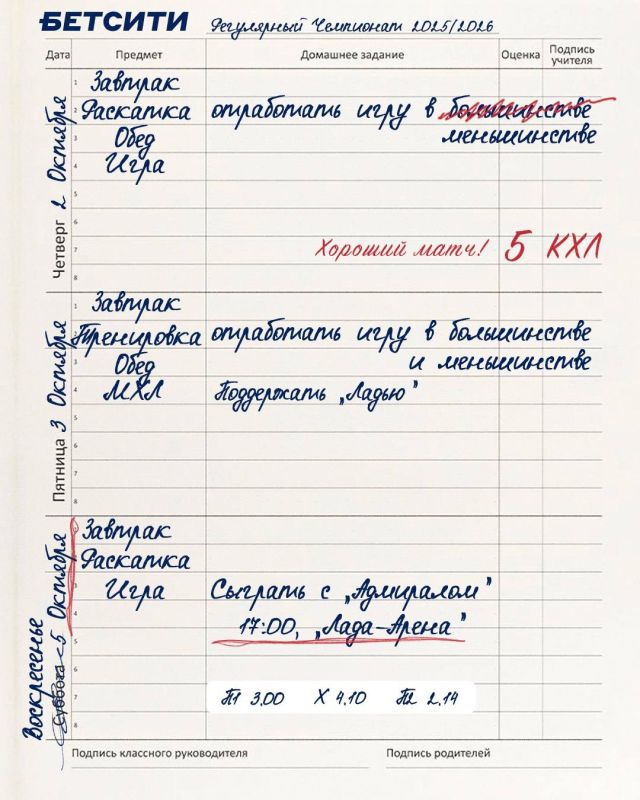 БЕТСИТИ Регулярный Чемпионат 2025/2026
Дата Предмет Домашнее задание Оценка Подпись учителя
Четверг 2 Октября
1 Завтрак
2 Раскатка отработать игру в большинстве
3 Обед меньшинстве
4 Игра
5
6
7 Хороший матч! 5 КХЛ
8
Пятница 3 Октября
1 Завтрак
2 Тренировка отработать игру в большинстве
3 Обед и меньшинстве
4 МХЛ Поддержать „Ладью"
5
6
7
8
Воскресенье Суббота 5 Октября
Завтрак
Раскатка
3 Игра Сыграть с „Адмиралом"
4 17:00, „Лада-Арена"
5
6
7 П1 3.00 X 4.10 П2 2.14
8
Подпись классного руководителя Подпись родителей